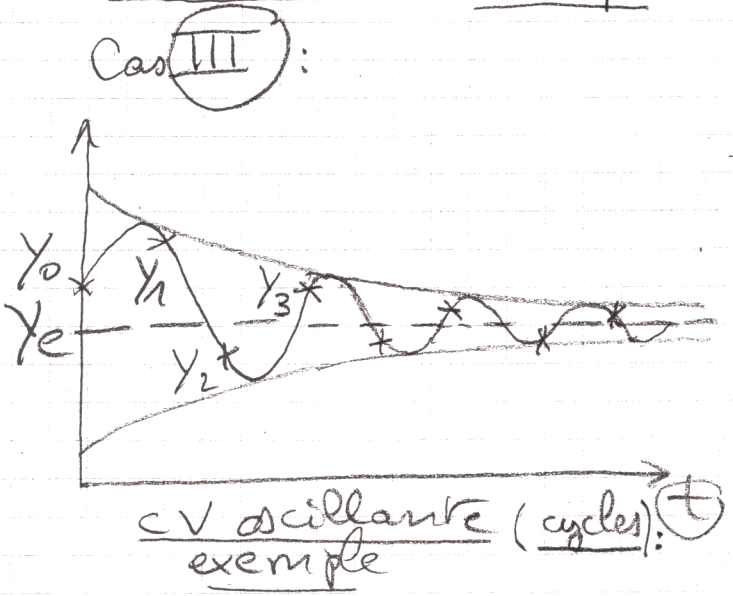 Cas III :
Y0
Y1
Y3
Ye
Y2
t
CV oscillante (cycles):
exemple